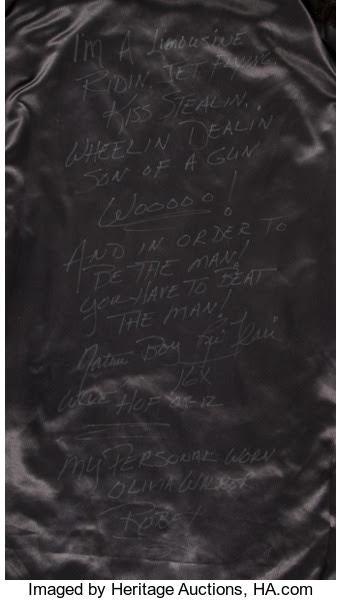 I'm A Limousine
Ridin, Jet Flying,
Kiss Stealin,
Wheelin Dealin
Son of A Gun
Wooooo!
And in order to
Be the man!
You have to beat
the man!
Nature Boy Ric Flair
16X
WWE HOF 08-12
My Personal worn
Olivia Walker
Robe X
Imaged by Heritage Auctions, HA.com